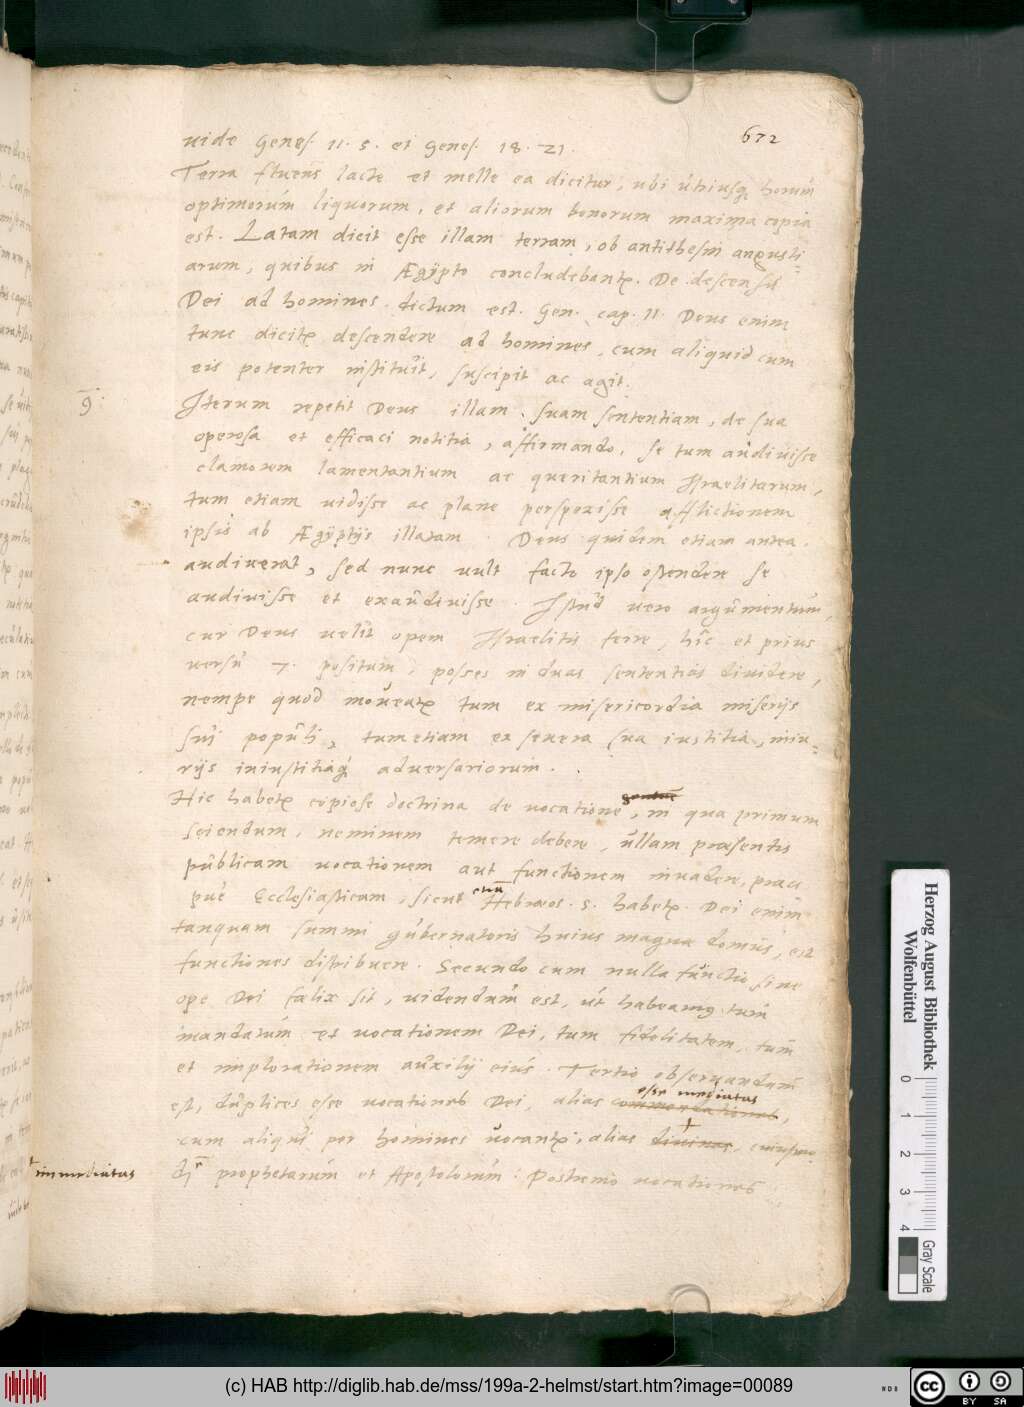 672
uide Genes. 11. 5. et Genes. 18. 21.
Terra fluens lacte et melle ea dicitur, ubi utriusq; horum
optimorum liquorum, et aliorum bonorum maxima copia
est. Latam dicit esse illam terram, ob antithesin angusti=
arum, quibus in Ægÿpto concludebantr. De descensu
Dei ad homines dictum est. Gen. cap. 11. Deus enim
tunc dicitr descendere ad homines, cum aliquid cum
eis potenter instituit, suscipit ac agit.
9. Iterum repetit Deus illam suam sententiam, de sua
operosa et efficaci notitia, affirmando, se tum audiuisse
clamorem lamentantium ac queritantium Israelitarum,
tum etiam uidisse ac plane perspexisse afflictionem
ipsis ab Ægÿptijs illatam. Deus quidem etiam antea
audiuerat, sed nunc uult facto ipso ostendere se
audiuisse et exaudiuisse. Istud uero argumentum,
cur Deus uelit opem Israelitis ferre, hic et prius
uersu 7. positum, posses in duas sententias diuidere,
nempe quod moueatr tum ex misericordia miserijs
sui populi, tum etiam ex seuera sua iustitia, iniu=
rijs iniustitiaq; aduersariorum.
Hic habetr copiose doctrina de uocatione, in qua primum
sciendum, neminem temere debere, ullam praesentis
publicam uocationem aut functionem inuadere, praeci
pue Ecclesiasticam, sicut etiã Hebraeos. 5. habetr. Dei enim
tanquam summi gubernatoris huius magnae domus, est
functiones distribuere. Secundo cum nulla functio sine
ope Dei faelix sit, uidendum est, ut habeamus tum
mandatum et uocationem Dei, tum fidelitatem, tum
et implorationem auxilij eius. Tertio obseruandum
est, duplices esse uocationes Dei, alias esse mediatas,
cum aliqui per homines uocantr, alias diuinas, cuiusmo
immediatas
di prophetarum et Apostolorum. Postremo uocationes
Herzog August Bibliothek
Wolfenbüttel
0 1 2 3 4
Gray Scale
(c) HAB http://diglib.hab.de/mss/199a-2-helmst/start.htm?image=00089
cc BY SA